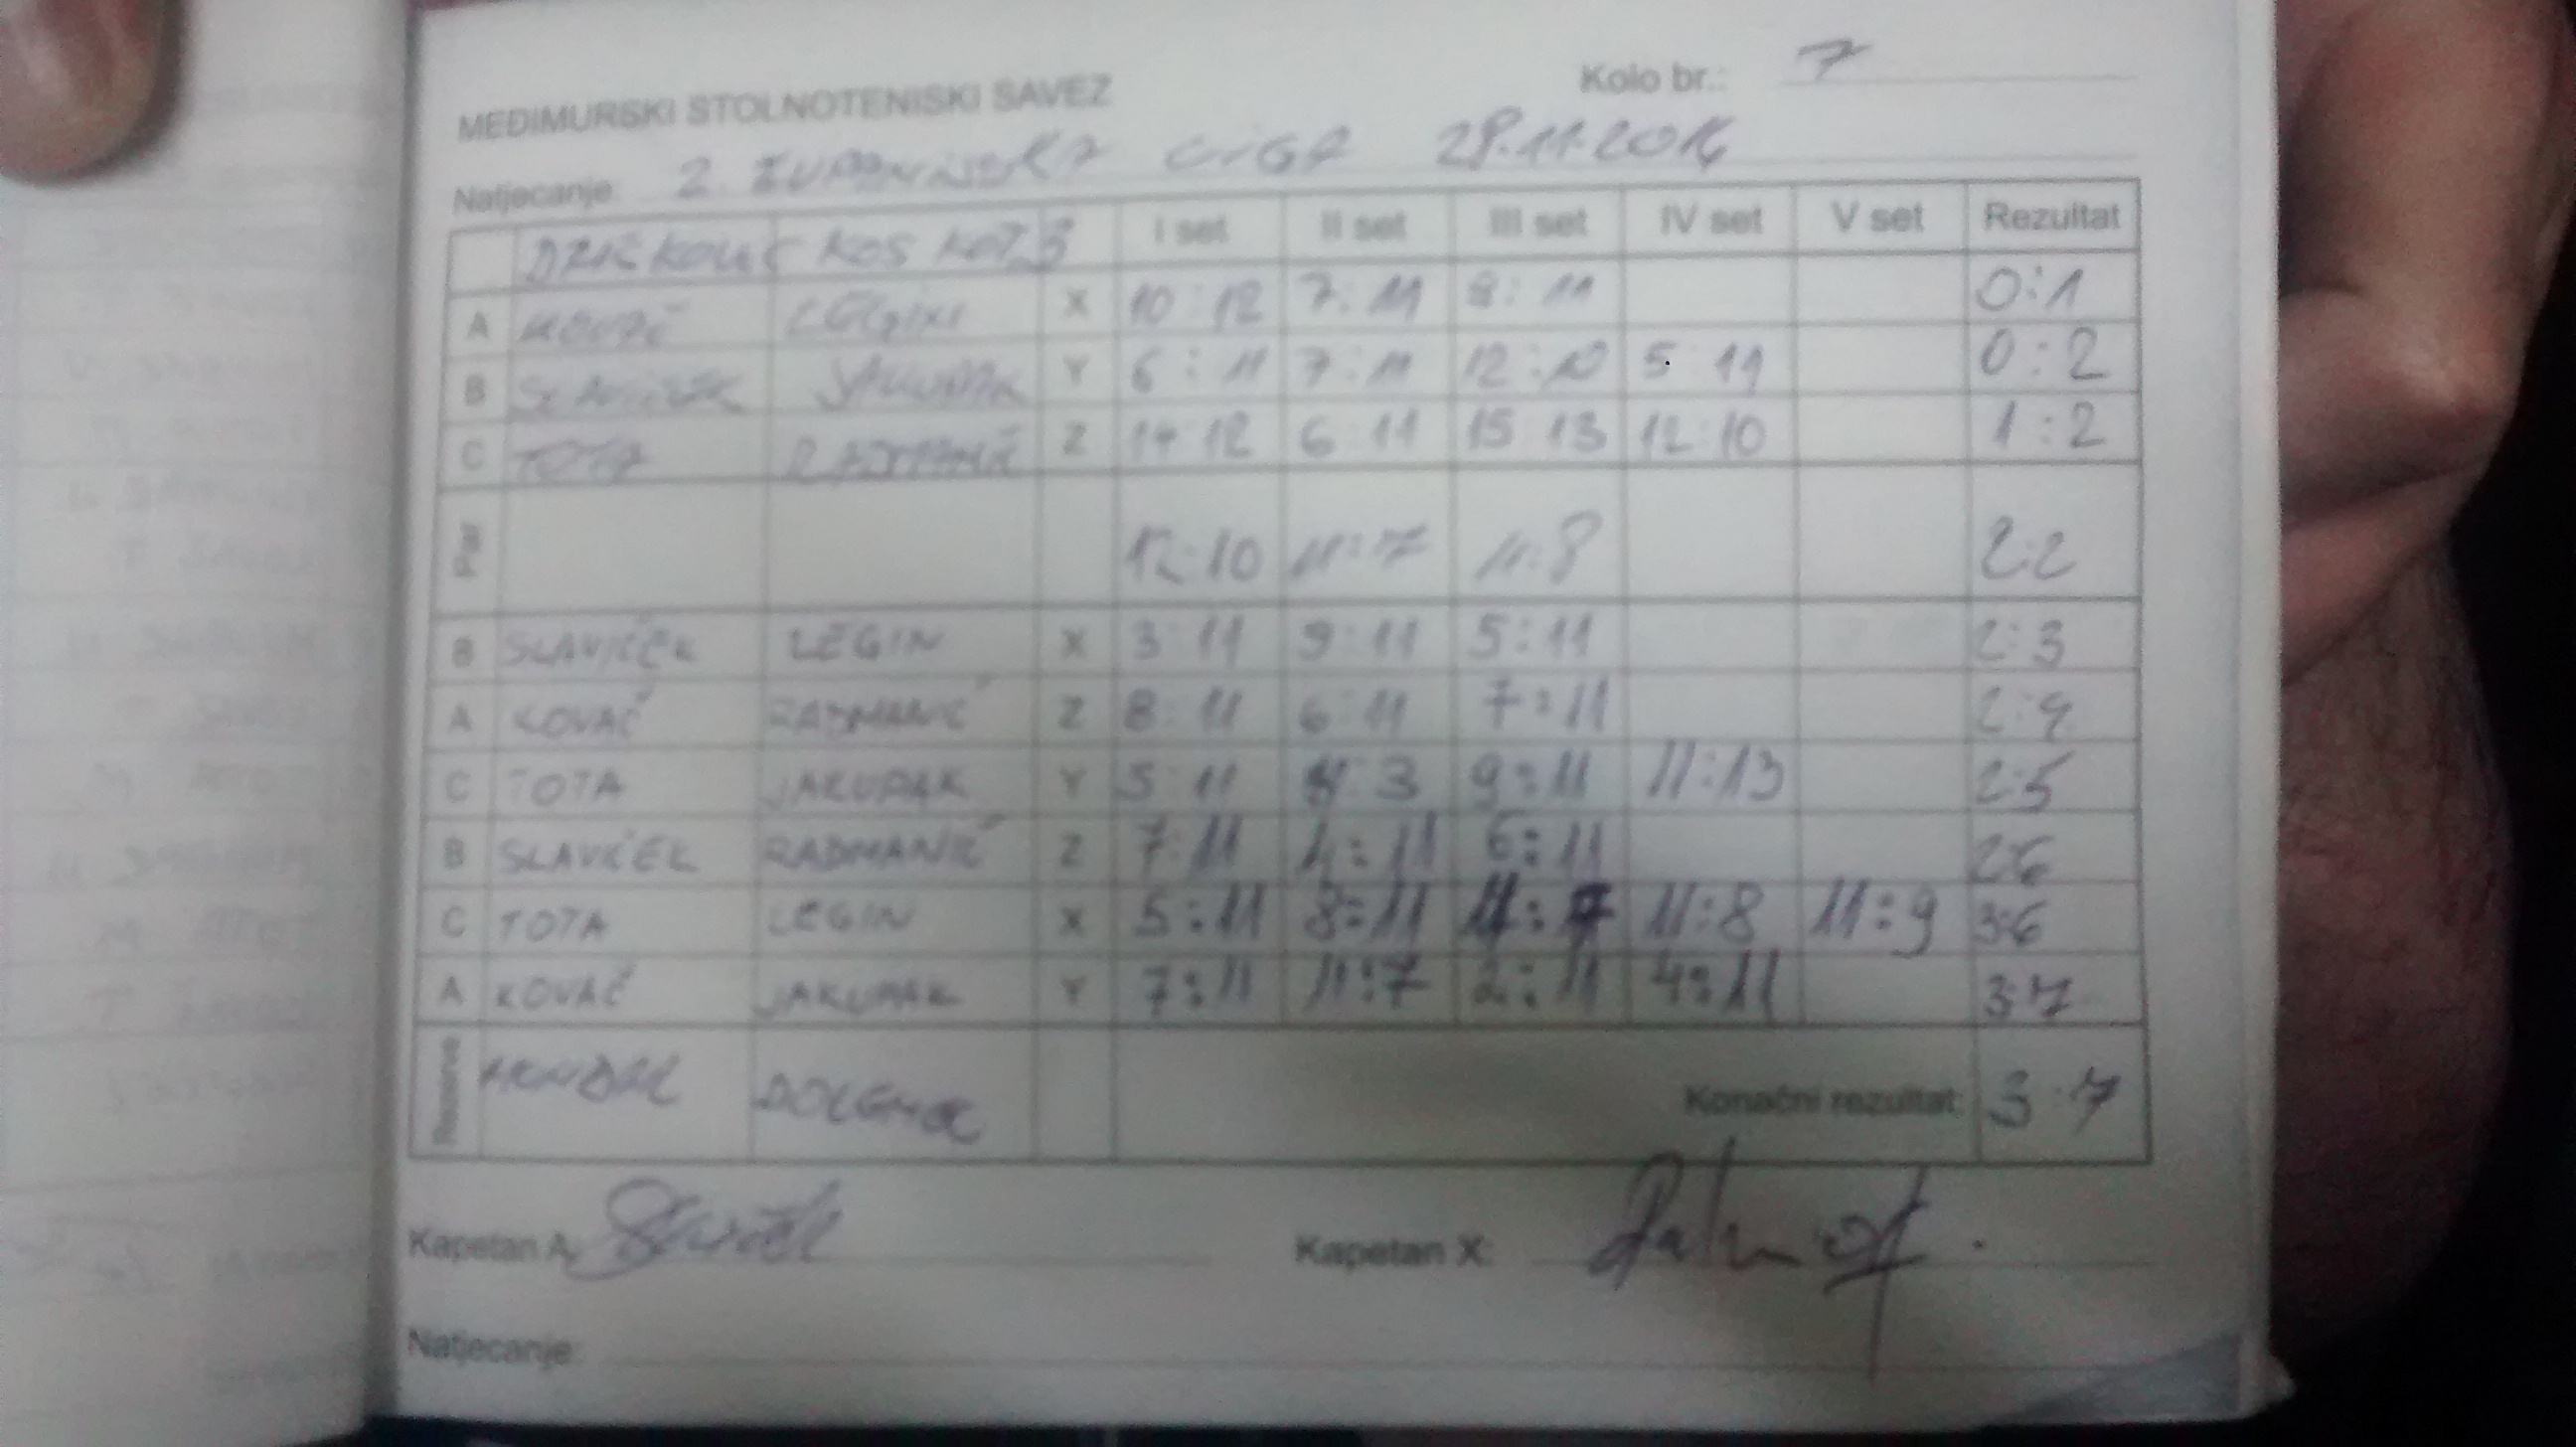 Kolo br.: 7
MEĐIMURSKI STOLNOTENISKI SAVEZ
Natjecanje: 2. ŽUPANIJSKA LIGA 28.11.2016
I set II set III set IV set V set Rezultat
A KOVAČ LEGIN X 10:12 7:11 8:11 0:1
B SLAVIČEK JAKUPAK Y 6:11 7:11 12:10 5:11 0:2
C TOTA RADMANIĆ Z 14 12 6 11 15 13 12:10 1:2
Par 12:10 11:7 11:8 2:2
B SLAVIČEK LEGIN X 3:11 9:11 5:11 2:3
A KOVAČ RADMANIĆ Z 8:11 6:11 7:11 2:4
C TOTA JAKUPAK Y 5 11 11:3 9:11 11:13 2:5
B SLAVIČEK RADMANIĆ Z 7:11 4:11 6:11 2:6
C TOTA LEGIN X 5:11 8:11 11:7 11:8 11:9 3:6
A KOVAČ JAKUPAK Y 7:11 11:7 2:11 4:11 3:7
Rezerve Konačni rezultat: 3:7
Kapetan A: Kapetan X:
Natjecanje: